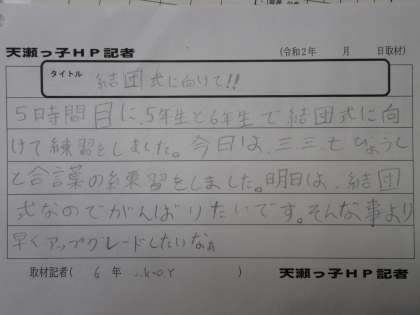 天瀬っ子HP記者
(令和2年 月 日取材)
タイトル
結団式に向けて!!
5日時間目に、5年生と6年生で結団式に向
けて練習をしました。今日は、三、三、七ひょうし
と合言葉の練習をしました。明日は、結団
式なのでがんばりたいです。そんな事より
早くアップグレードしたいなぁ
取材記者( 6 年 . K.O.Y )
天瀬っ子HP記者